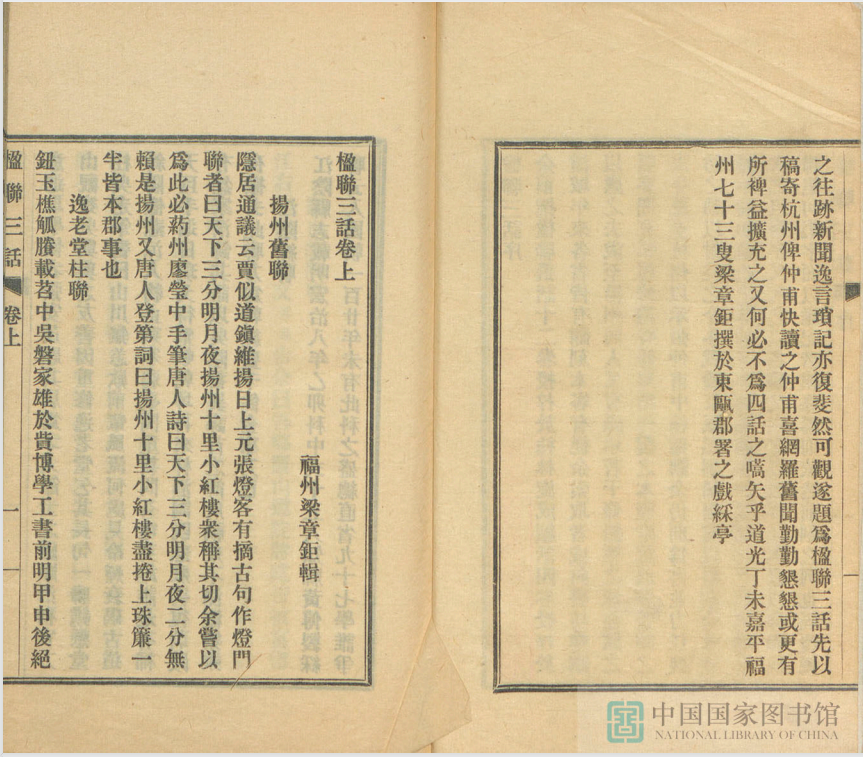 之往跡新聞逸言瑣記亦復斐然可觀遂題爲楹聯三話先以
稿寄杭州俾仲甫快讀之仲甫喜網羅舊聞勤勤懇懇或更有
所裨益擴充之又何必不爲四話之嚆矢乎道光丁未嘉平福
州七十三叟梁章鉅撰於東甌郡署之戲綵亭
楹聯三話卷上
福州梁章鉅輯
揚州舊聯
隱居通議云賈似道鎭維揚日上元張燈客有摘古句作燈門
聯者曰天下三分明月夜揚州十里小紅樓衆稱其切余嘗以
爲此必葯州廖瑩中手筆唐人詩曰天下三分明月夜二分無
賴是揚州又唐人登第詞曰揚州十里小紅樓盡捲上珠簾一
半皆本郡事也
逸老堂柱聯
鈕玉樵觚賸載苕中吳磐家雄於貲博學工書前明甲申後絕
楹聯三話
卷上
一
中国国家图书馆
NATIONAL LIBRARY OF CHINA